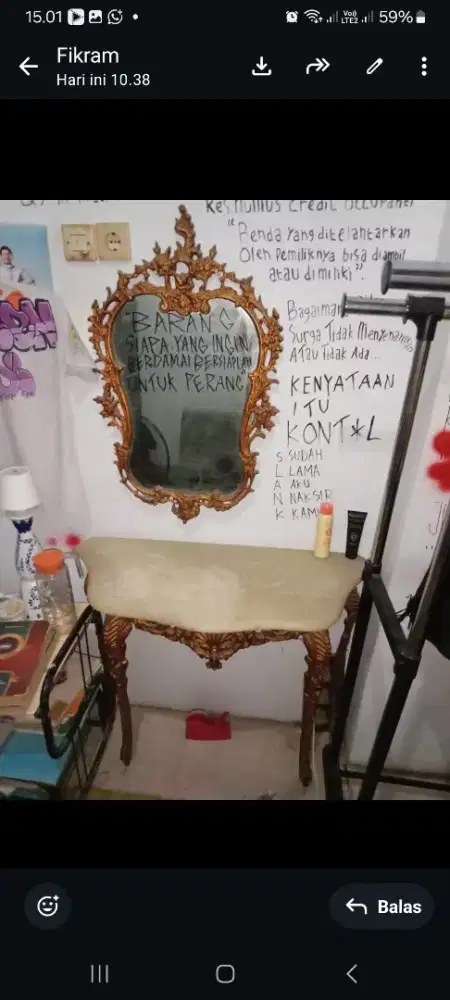 15.01
Vo))
LTE2
59%
Fikram
Hari ini 10.38
Res Nullius Credit Occupanti
"Benda yang ditelantarkan
Oleh Pemiliknya bisa diambil
atau dimiliki".
Surga Tidak
ATau Tidak Ada...
KENYATAAN
ITU
KONT*L
S SUDAH
L LAMA
A AKU
N NAKSIR
K KAMU
BARANG
SIAPA YANG INGIN
BERDAMAI BERSIAPLAH
UNTUK PERANG
Balas